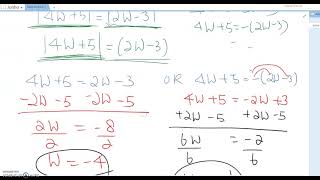 |4W+5| = |2W-3|
4W+5 = -(2W-3)
|4W+5| = (2W-3)
4W+5 = 2W-3 OR 4W+5 = -(2W-3)
-2W-5 -2W-5 4W+5 = -2W+3
+2W-5 +2W-5
2W/2 = -8/2 6W/6 = -2/6
W = -4